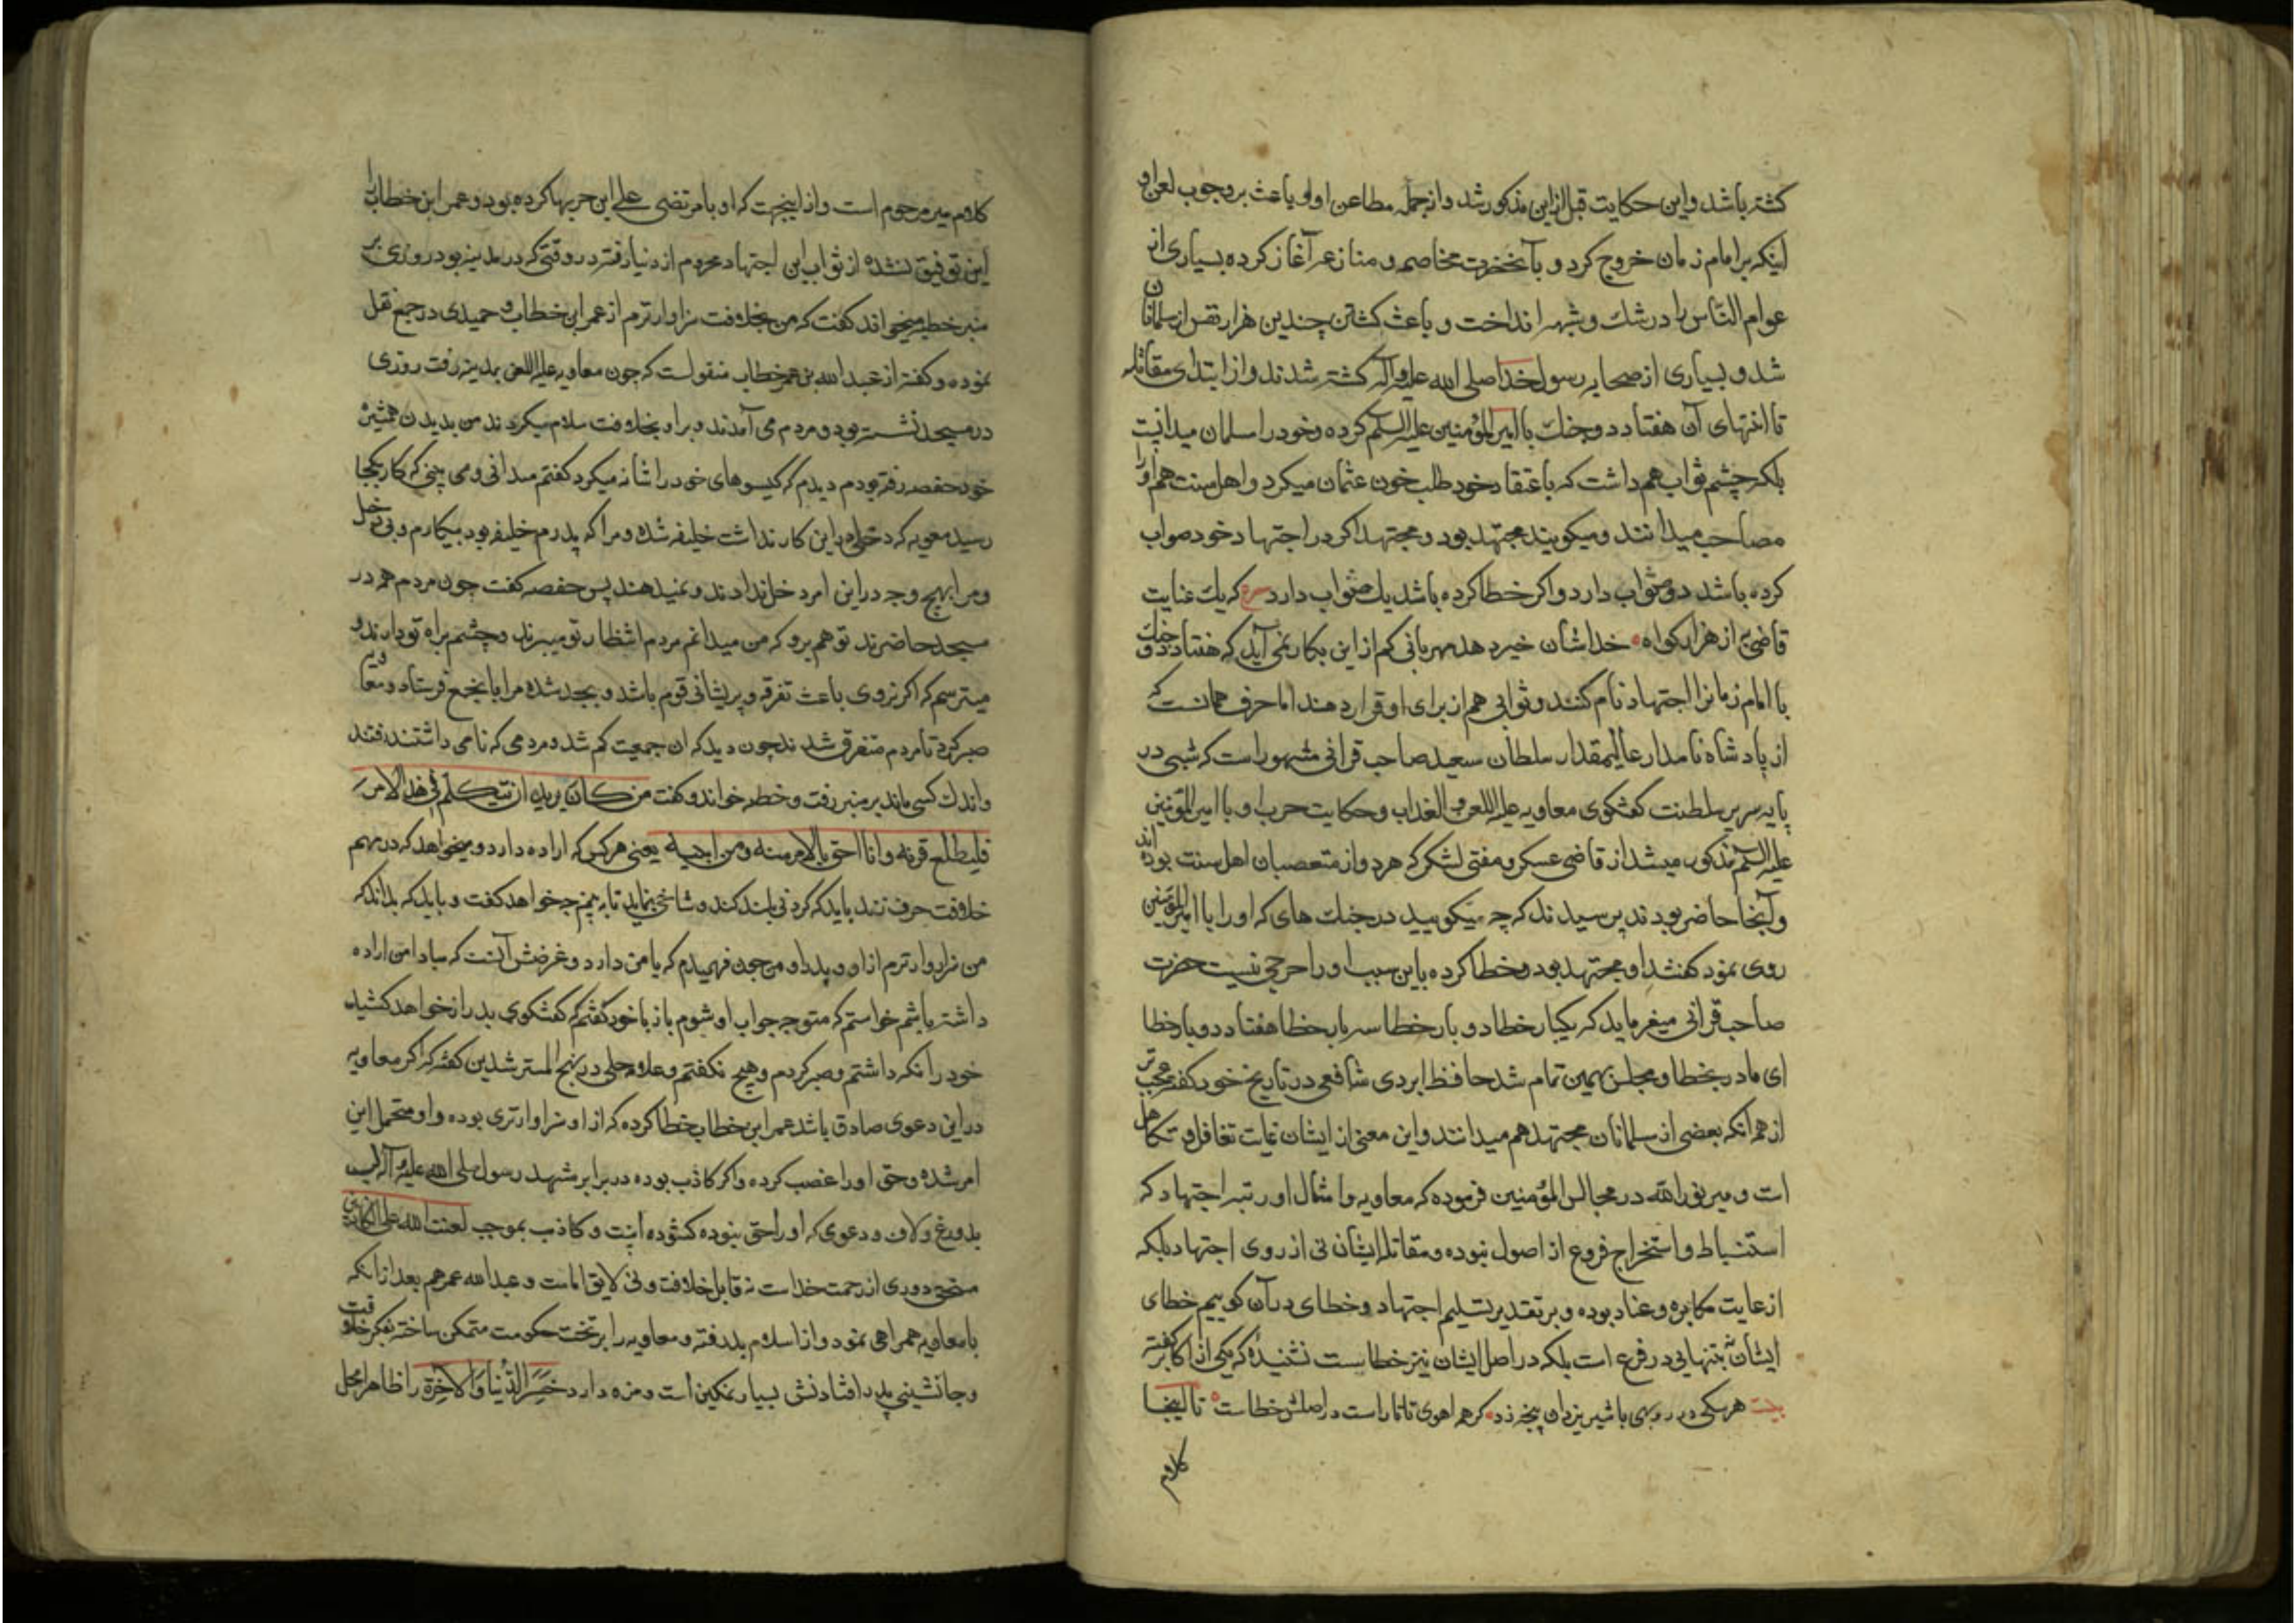 کشته باشد و این حکایت قبل از این مذکور شد و از جمله مطاعن او و باعث بر وجوب لعن او
اینکه بر امام زمان خروج کرد و بآنحضرت مخاصمه و منازعه آغاز کرده بسیاری از
عوام الناس را در شک و شبهه انداخت و باعث کشتن چندین هزار نفس از مسلمانان
شد و بسیاری از صحابه رسول خدا صلی الله علیه وآله کشته شدند و از ابتدای مقاتله
تا انتهای آن هفتاد دو جنک با امیر المؤمنین علیه السلم کرده و خود را مسلمان میدانست
بلکه چشم ثواب هم داشت که باعتقاد خود طلب خون عثمان میکرد و اهل سنت هم او را
مصاحب میدانند و میکویند مجتهد بود و مجتهد اکر در اجتهاد خود صواب
کرده باشد دو ثواب دارد و اکر خطا کرده باشد یک ثواب دارد که یک عنایت
قاضی به از هزار کواه خداشان خیر دهد مهربانی کم از این بکار نمی آید که هفتاد دو جنک
با امام زمانرا اجتهاد نام کنند و ثوابی هم از برای او قرار دهند اما حرف همانست که
از پادشاه نامدار عالیمقدار سلطان سعید صاحب قرانی مشهور است که شبی در
پایه سریر سلطنت کفتکوی معاویه علیه اللعن و العذاب و حکایت حرب او با امیر المؤمنین
علیه السلم مذکور میشد از قاضی عسکر و مفتی لشکر که هر دو از متعصبان اهل سنت بوده اند
و آنجا حاضر بودند پرسیدند که چه میکویید در جنک های که او را با امیر المؤمنین
روی نمود کفتند او مجتهد بود و خطا کرده باین سبب او را حرجی نیست حضرت
صاحب قرانی میفرماید که یکبار خطا دو بار خطا سه بار خطا هفتاد دو بار خطا
ای مادر بخطا و مجلس بهمین تمام شد حافظ ابردی شافعی در تاریخ خود کفته عجب تر
از همه انکه بعضی از مسلمانان مجتهد هم میدانند و این معنی از ایشان غایت تغافل و تکاهل
است و میر نور الله در مجالس المؤمنین فرموده که معاویه و امثال او را رتبه اجتهاد که
استنباط و استخراج فروع از اصول نبوده و مقاتله ایشان نی از روی اجتهاد بلکه
از غایت مکابره و عناد بوده و بر تقدیر تسلیم اجتهاد و خطای در آن کوییم خطای
ایشان بتنهایی در فرع است بلکه در اصل ایشان نیز خطاست نشنیده که یکی از اکابر کفته
بیت هر سکی در روبهی با شیر یزدان پنجه زد کر همه اهوی تاتار است در اصلش خطاست تا اینجا
کلام
کلام میر مرحوم است و از اینجهت که او با مرتضی علی این حربها کرده بود و عمر ابن خطاب را
این توفیق نشده از ثواب این اجتهاد محروم از دنیا رفته در وقتی که در مدینه بود روزی بر
منبر خطبه میخواند کفت که من بخلافت سزاوارترم از عمر ابن خطاب و حمیدی در جمع نقل
نموده و کفته از عبد الله بن عمر خطاب منقولست که چون معاویه علیه اللعن بمدینه رفت روزی
در مسجد نشسته بود و مردم می آمدند و بر او بخلافت سلام میکردند من بدیدن همشیره
خود حفصه رفته بودم دیدم که کیسوهای خود را شانه میکرد کفتم میدانی و می بینی که کار بکجا
رسید معویه که دخلی باین کار نداشت خلیفه شده و مرا که پدرم خلیفه بود بیکارم و بی دخل
و مرا بهیچ وجه در این امر دخل ندادند و نمیدهند پس حفصه کفت چون مردم همه در
مسجد حاضرند تو هم برو که من میدانم مردم انتظار تو میبرند و چشم براه تو دارند و
میترسم که اکر نروی باعث تفرقه و پریشانی قوم باشد و بجد شده مرا بانجمع فرستاد و معاویه
صبر کرد تا مردم متفرق شدند چون دید که ان جمعیت کم شد و مردمی که نامی داشتند رفتند
و اندک کسی ماند بر منبر رفت و خطبه خواند و کفت من کان یرید ان یتکلم فی هذا الامر
فلیطلع قرنه و انا احق بالامر منه و من ابیه یعنی هر کس که اراده دارد و میخواهد که در مهم
خلافت حرف زند باید که کردنی بلند کند و شاخی بنماید تا به بینم چه خواهد کفت و باید که بداند که
من سزاوارترم از او و پدر او من چون فهمیدم که با من دارد و غرضش آنست که مبادا من اراده
داشته باشم خواستم که متوجه جواب او شوم باز با خود کفتم که کفتکوی بدراز خواهد کشید
خود را نکه داشتم و صبر کردم و هیچ نکفتم و علامه حلی در نهج المسترشدین کفته که اکر معاویه
در این دعوی صادق باشد عمر ابن خطاب خطا کرده که از او سزاوارتری بوده و او متحمل این
امر شده و حق او را غصب کرده و اکر کاذب بوده در برابر مشهد رسول صلی الله علیه وآله لب
بدروغ و لاف و دعوی که او را حق نبوده کشوده است و کاذب بموجب لعنت الله علی الکاذبین
مستحق دوری از رحمت خداست نه قابل خلافت و نی لایق امامت و عبد الله عمر هم بعد از انکه
با معاویه همراهی نمود و از اسلام بدر رفته و معاویه را بر تخت حکومت متمکن ساخته بفکر خلافت
و جانشینی پدر افتادنش بسیار نمکین است و مزه دارد خسر الدنیا والآخرة را ظاهرا محل